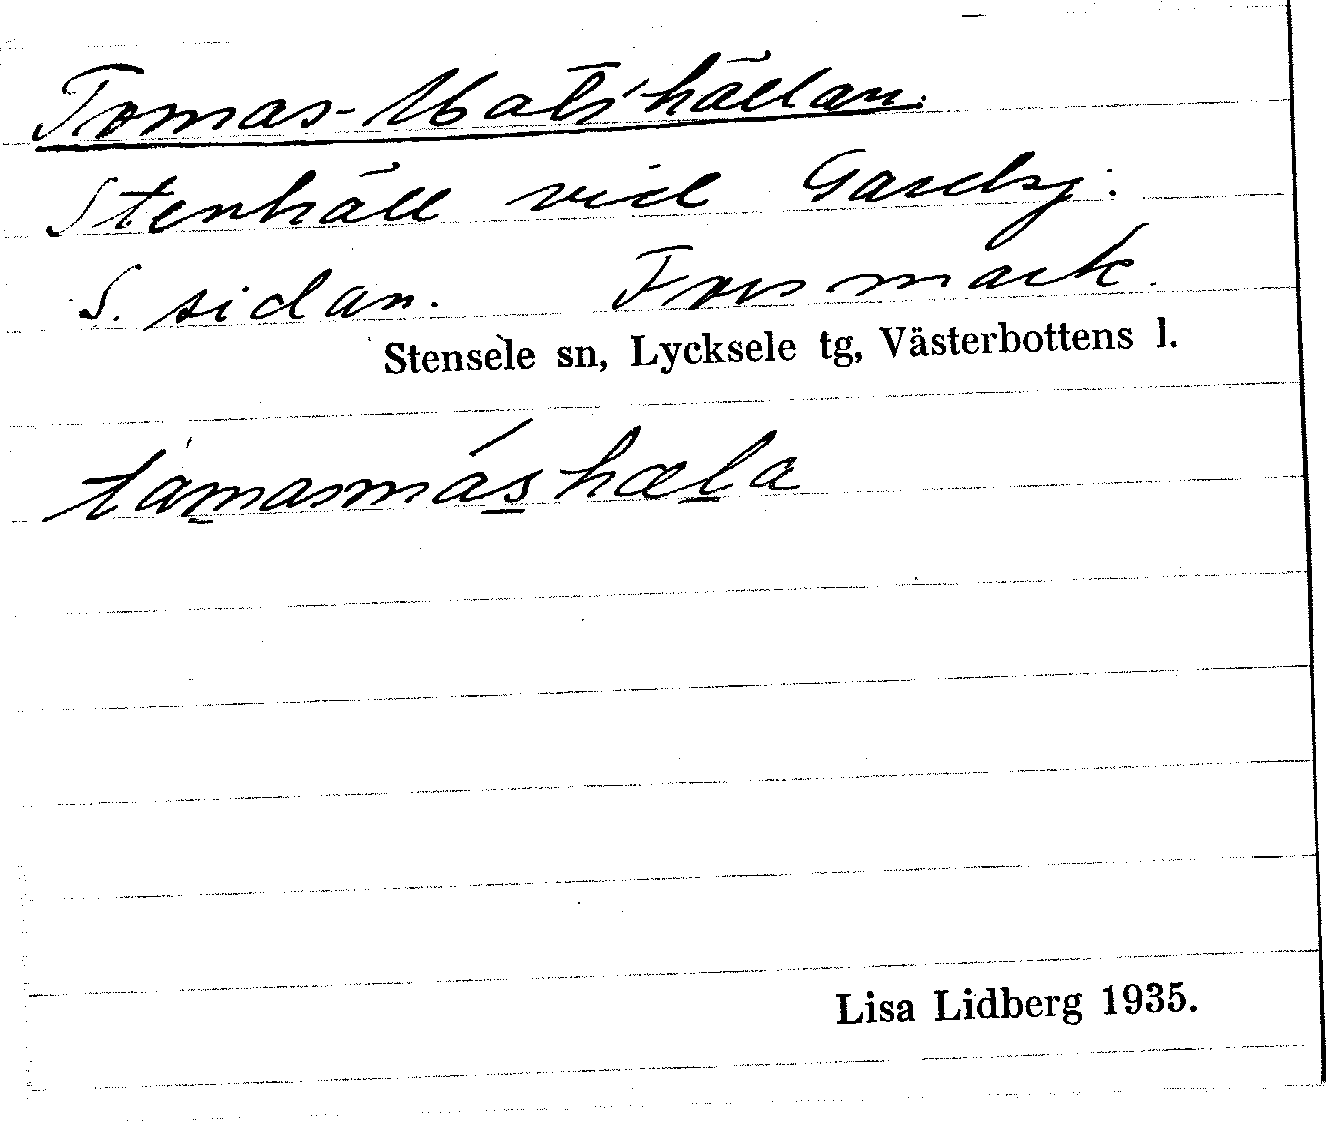 Tomas-Mats'hällan.
Stenhäll vid Gardsj.
S. sidan. Forsmark.
Stensele sn, Lycksele tg, Västerbottens l.
tamasmáshæla
Lisa Lidberg 1935.